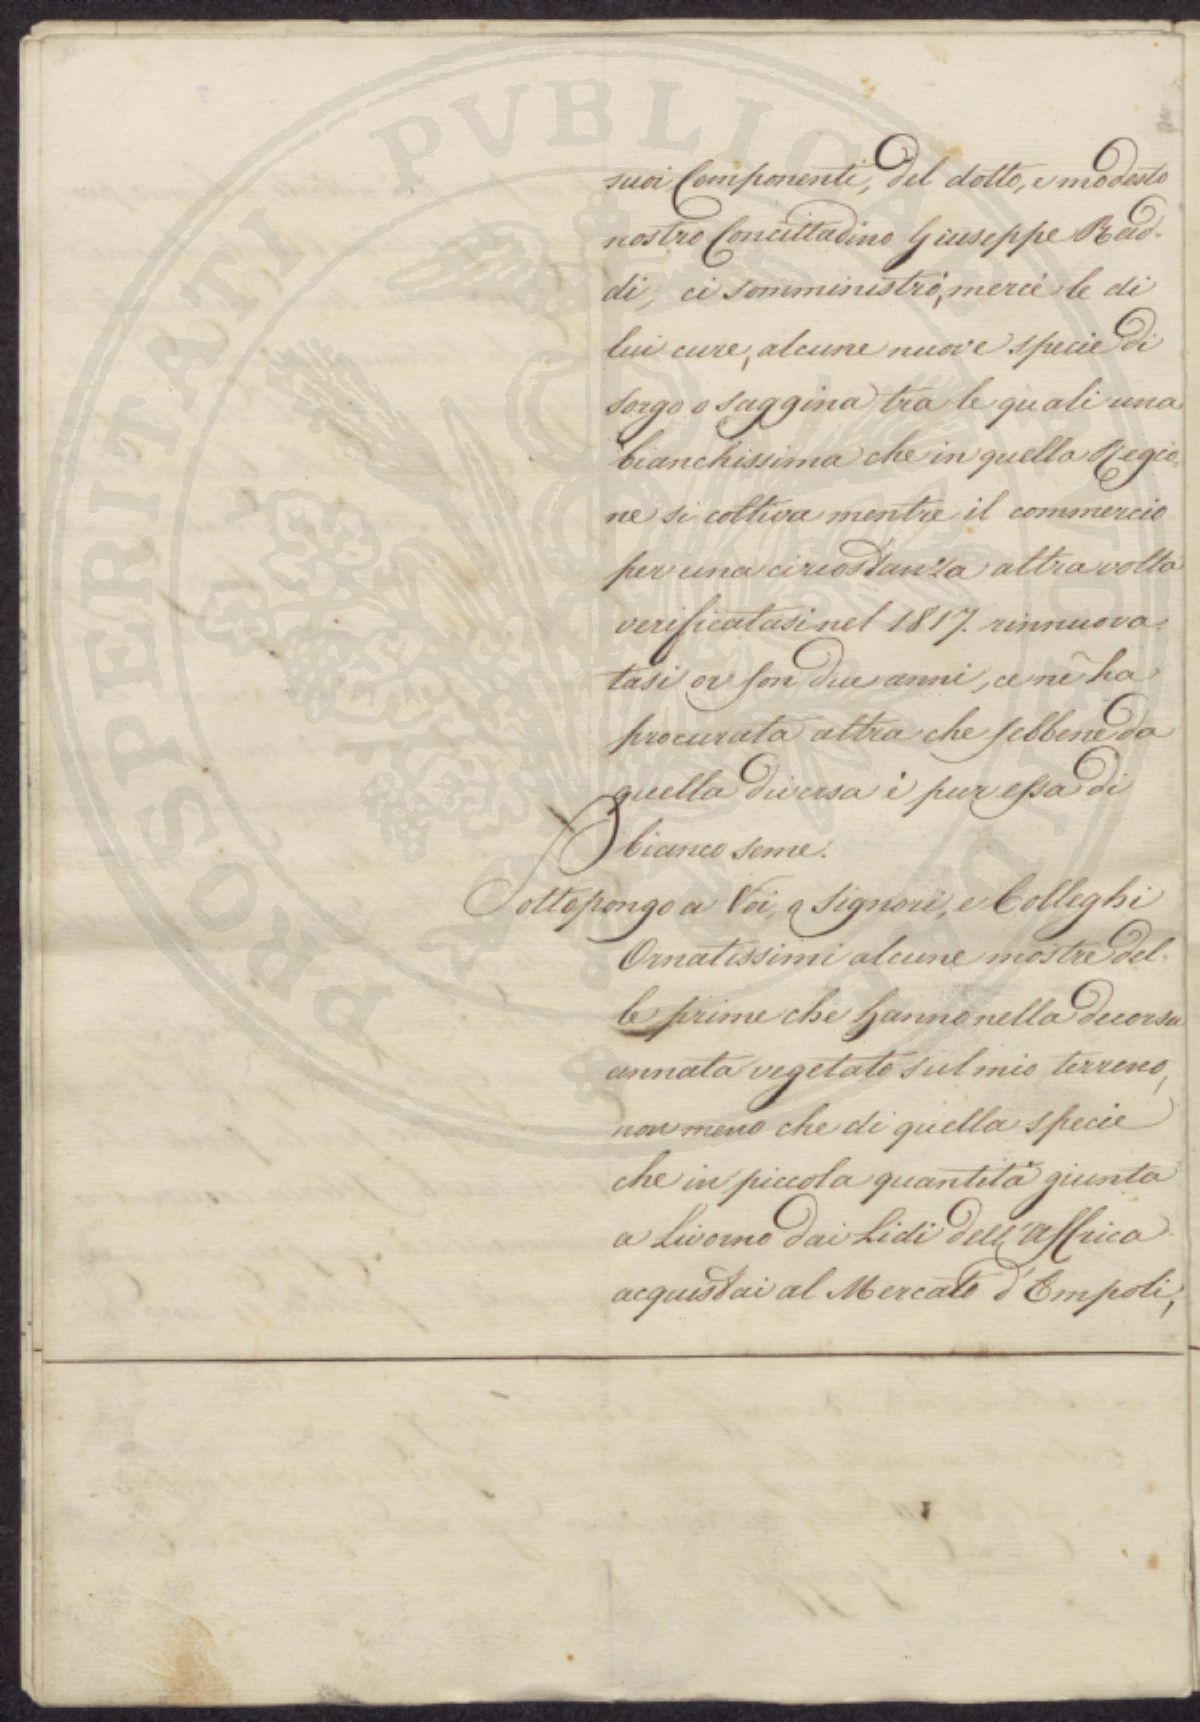 suoi Componenti, del dotto, e modesto
nostro Concittadino Giuseppe Rad-
di, ci somministrò, mercè le di
lui cure, alcune nuove specie di
sorgo o saggina tra le quali una
bianchissima che in quella Regio-
ne si coltiva mentre il commercio
per una circostanza altra volta
verificatasi nel 1817. rinnuova-
tasi or son due anni, ce nè ha
procurata altra che sebbene da
quella diversa è pur essa di
bianco seme.
Sottopongo a Voi, o Signori, e Colleghi
Ornatissimi alcune mostre del-
le prime che hanno nella decorsa
annata vegetato sul mio terreno,
non meno che di quella specie
che in piccola quantità giunta
a Livorno dai Lidi dell'Affrica
acquistai al Mercato d'Empoli,
PROSPERITATI PVBLICAE AVGENDAE